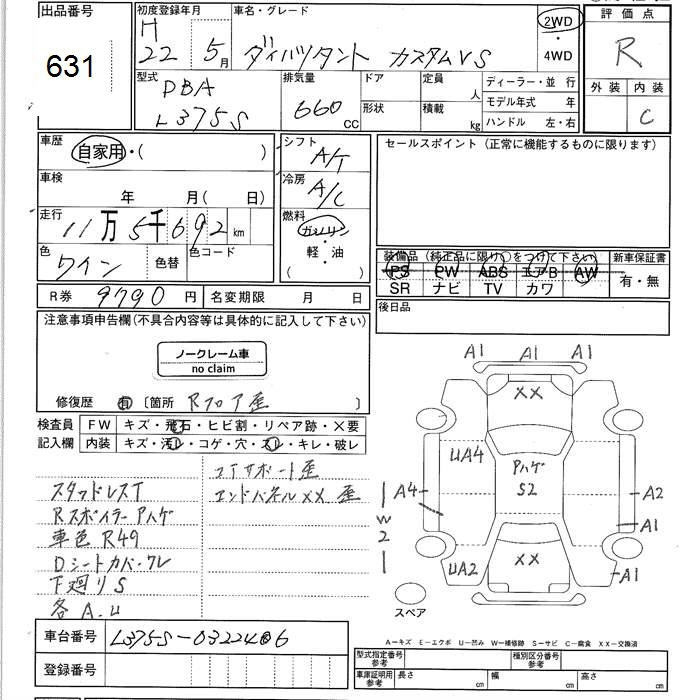 出品番号
631
初度登録年月
H
22 5月
車名・グレード
ダイハツタント カスタムVS
2WD
4WD
評価点
R
外装 内装
C
型式
DBA
L375S
排気量
660 CC
ドア
形状
定員
人
積載
kg
ディーラー・並行
モデル年式 年
ハンドル 左・右
車歴
自家用・( )
車検
年 月( 日)
走行
11万5千692km
色
ワイン
色替
色コード
シフト
A/T
冷房
A/C
燃料
ガソリン
軽・油
( )
セールスポイント(正常に機能するものに限ります)
装備品(純正品に限り○をつけて下さい)
PS PW ABS エアB AW
SR ナビ TV カワ
新車保証書
有・無
後日品
R券 9790円
名変期限 月 日
注意事項申告欄(不具合内容等は具体的に記入して下さい)
ノークレーム車
no claim
修復歴 有 〔箇所 Rフロア歪 〕
検査員
記入欄
FW キズ・飛石・ヒビ割・リペア跡・X要
内装 キズ・汚レ・コゲ・穴・スレ・キレ・破レ
スタッドレスT
Rスポイラー Pハゲ
車色 R49
Dシートカバークレ
下廻りS
各A.U
コアサポート歪
エンドパネルXX 歪
A1 A1 A1
XX
UA4
Pハゲ
S2
A4
W2
A2
A1
UA2
XX
A1
スペア
A－キズ E－エクボ U－凹み W－補修跡 S－サビ C－腐食 XX－交換済
車台番号 L375S-0322486
登録番号
型式指定番号
参考
種別区分番号
参考
車庫証明用
参考
長さ cm
幅 cm
高さ cm